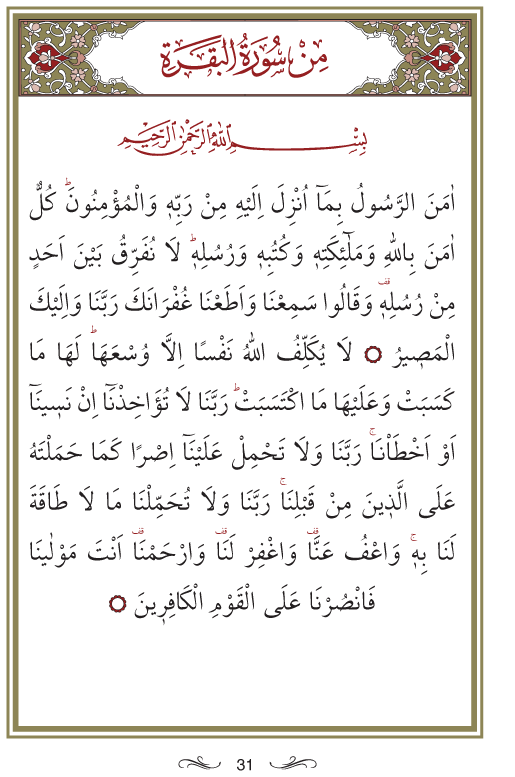 مِنْ سُورَةِ الْبَقَرَةِ
بِسْمِ اللّٰهِ الرَّحْمٰنِ الرَّحٖيمِ
اٰمَنَ الرَّسُولُ بِمَٓا اُنْزِلَ اِلَيْهِ مِنْ رَبِّهٖ وَالْمُؤْمِنُونَۜ كُلٌّ
اٰمَنَ بِاللّٰهِ وَمَلٰٓئِكَتِهٖ وَكُتُبِهٖ وَرُسُلِهٖۜ لَا نُفَرِّقُ بَيْنَ اَحَدٍ
مِنْ رُسُلِهٖ۠ وَقَالُوا سَمِعْنَا وَاَطَعْنَا غُفْرَانَكَ رَبَّنَا وَاِلَيْكَ
الْمَصٖيرُ ۝ لَا يُكَلِّفُ اللّٰهُ نَفْسًا اِلَّا وُسْعَهَاۜ لَهَا مَا
كَسَبَتْ وَعَلَيْهَا مَا اكْتَسَبَتْۜ رَبَّنَا لَا تُؤَاخِذْنَٓا اِنْ نَسٖينَٓا
اَوْ اَخْطَاْنَاۚ رَبَّنَا وَلَا تَحْمِلْ عَلَيْنَٓا اِصْرًا كَمَا حَمَلْتَهُ
عَلَى الَّذٖينَ مِنْ قَبْلِنَاۚ رَبَّنَا وَلَا تُحَمِّلْنَا مَا لَا طَاقَةَ
لَنَا بِهٖۚ وَاعْفُ عَنَّا۠ وَاغْفِرْ لَنَا۠ وَارْحَمْنَا۠ اَنْتَ مَوْلٰينَا
فَانْصُرْنَا عَلَى الْقَوْمِ الْكَافِرٖينَ ۝
31